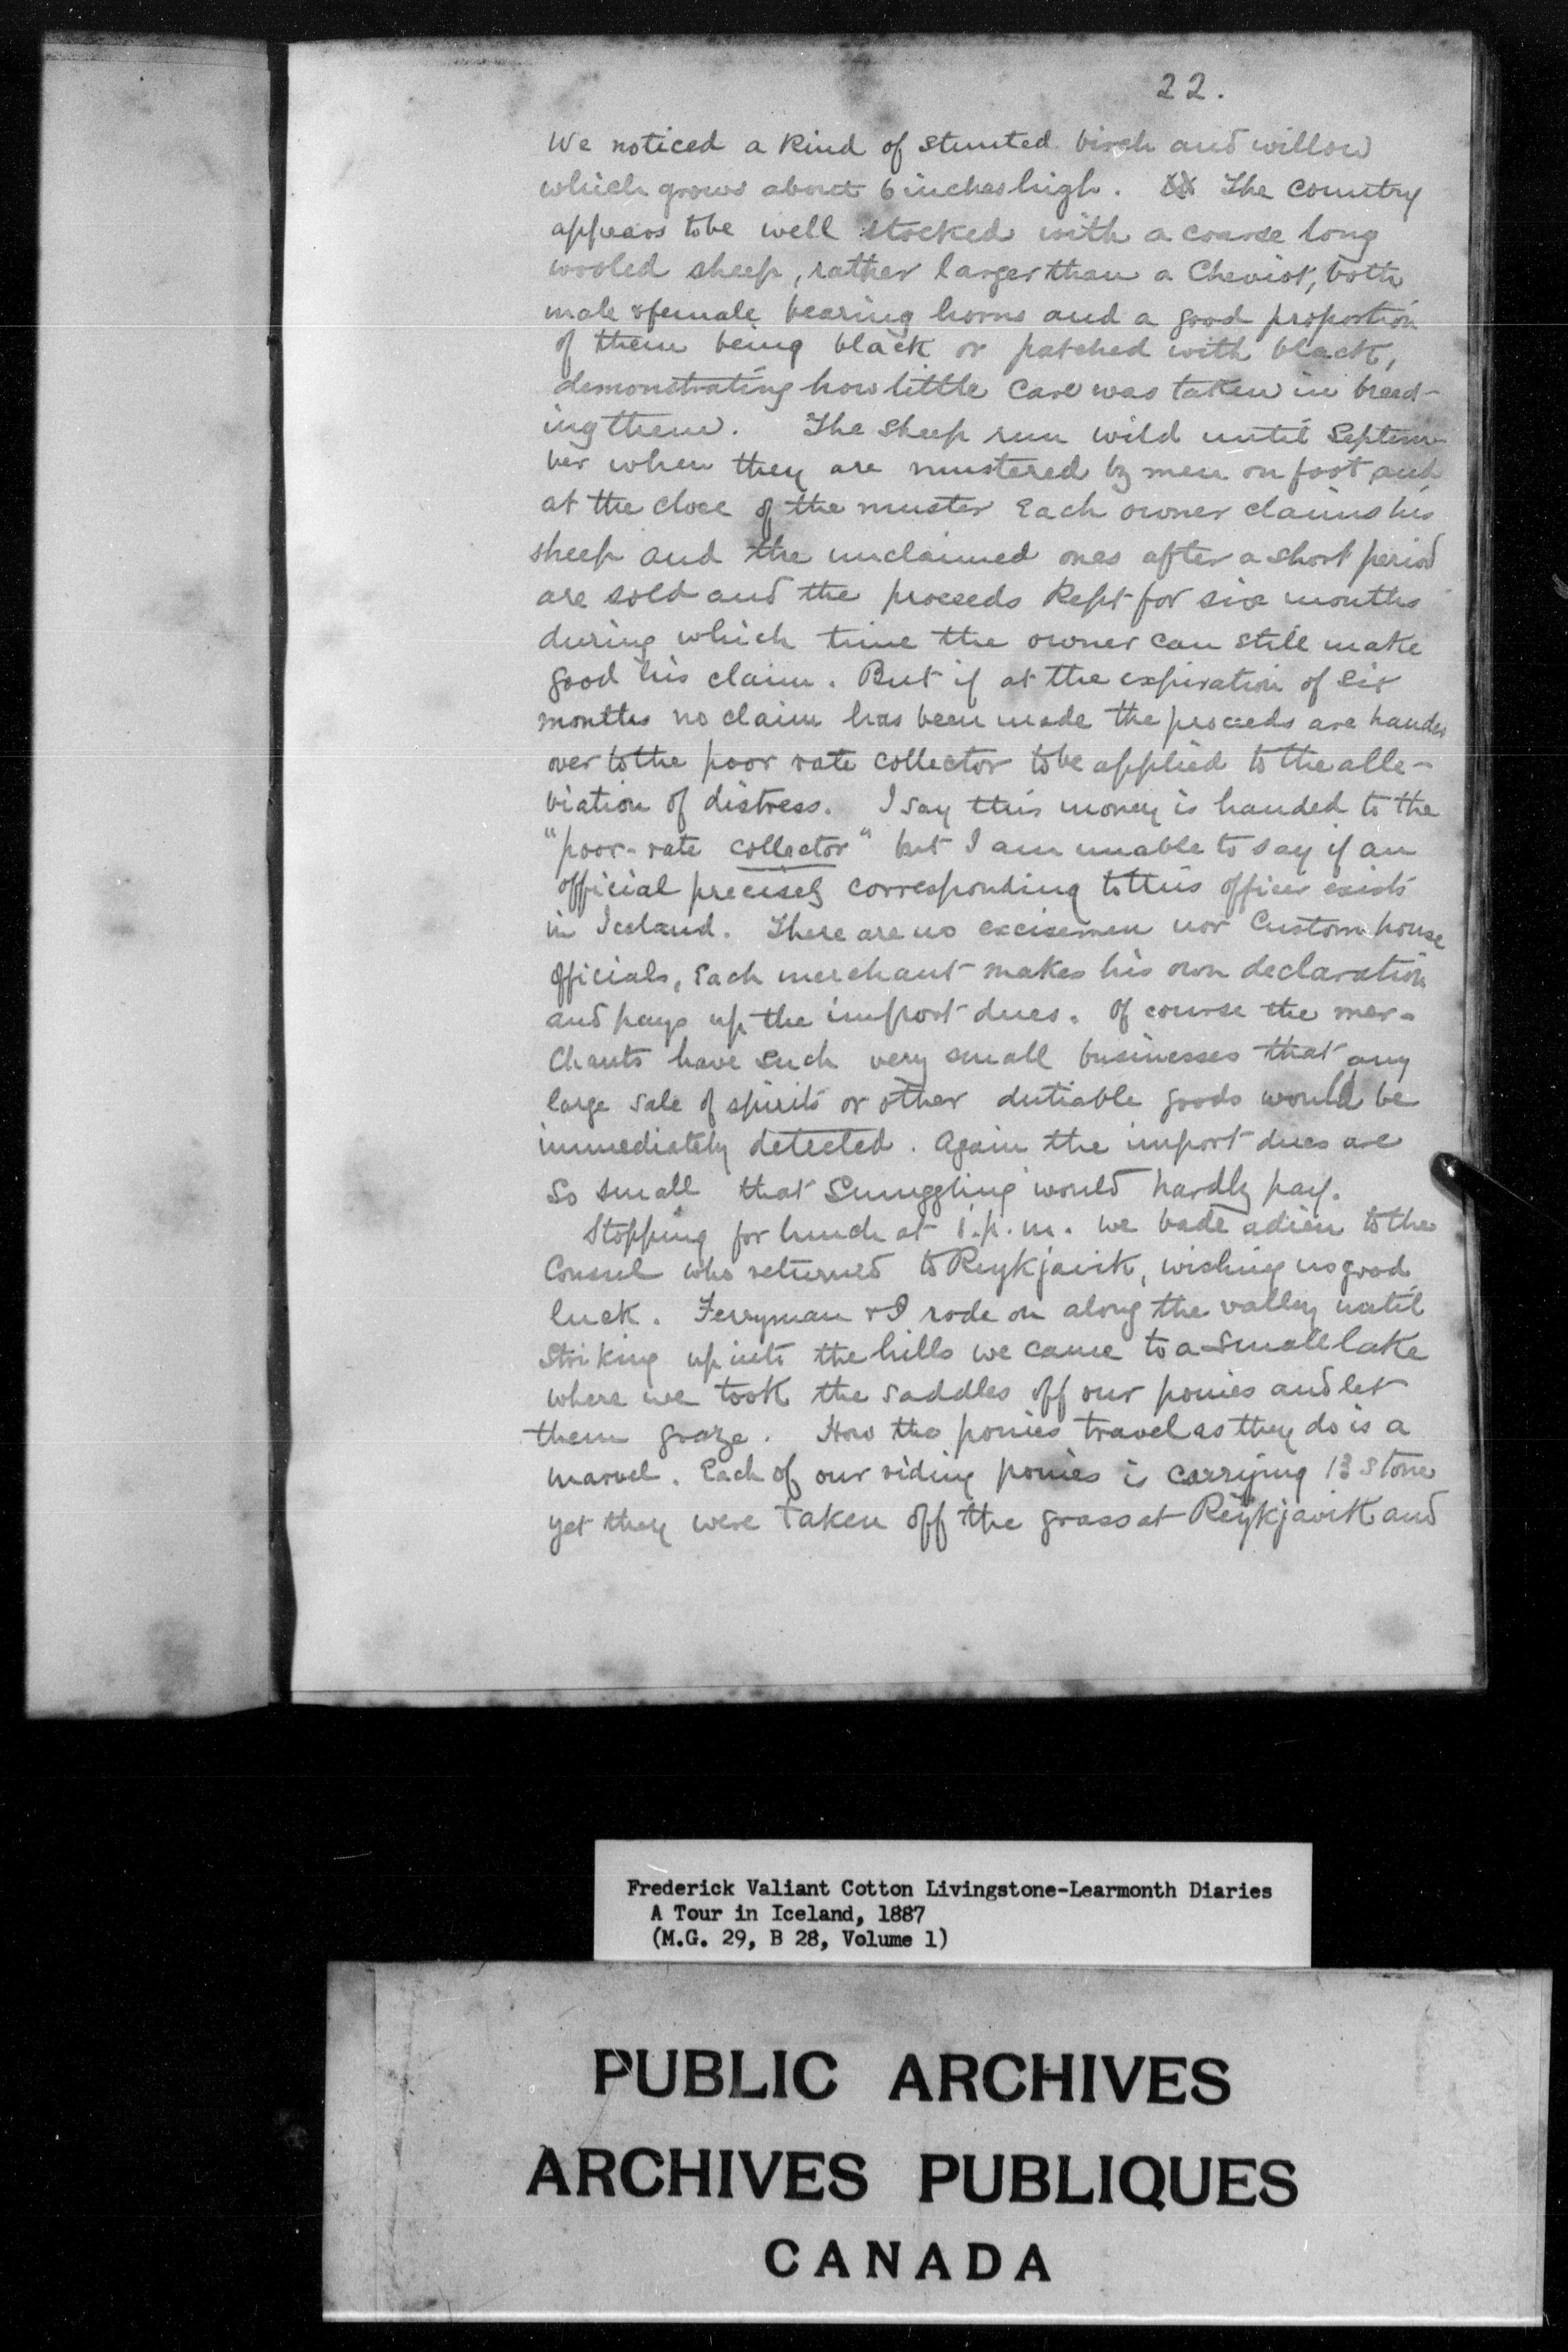 22.
We noticed a kind of stunted birch and willow
which grows about 6 inches high. The country
appears to be well stocked with a coarse long
wooled sheep, rather larger than a Cheviot, both
male & female bearing horns and a good proportion
of them being black or patched with black,
demonstrating how little care was taken in breed-
ing them. The sheep run wild until Septem-
ber when they are mustered by men on foot and
at the close of the muster Each owner claims his
sheep and the unclaimed ones after a short period
are sold and the proceeds kept for six months
during which time the owner can still make
good his claim. But if at the expiration of six
months no claim has been made the proceeds are handed
over to the poor rate collector to be applied to the alle-
viation of distress. I say this money is handed to the
"poor-rate collector" but I am unable to say if an
official precisely corresponding to this officer exists
in Iceland. There are no excisemen nor Custom house
officials, Each merchant makes his own declaration
and pays up the import dues. Of course the mer-
chants have such very small businesses that any
large sale of spirits or other dutiable goods would be
immediately detected. Again the import dues are
so small that Smuggling would hardly pay.
Stopping for lunch at 1.p.m. we bade adieu to the
Consul who returned to Reykjavik, wishing us good
luck. Ferryman & I rode on along the valley until
striking up into the hills we came to a small lake
where we took the saddles off our ponies and let
them graze. How the ponies travel as they do is a
marvel. Each of our riding ponies is carrying 13 stone
yet they were taken off the grass at Reykjavik and
Frederick Valiant Cotton Livingstone-Learmonth Diaries
A Tour in Iceland, 1887
(M.G. 29, B 28, Volume 1)
PUBLIC ARCHIVES
ARCHIVES PUBLIQUES
CANADA